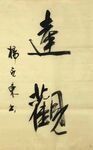 達觀
楊立東書